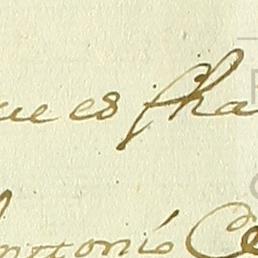 ue es fha
ntonio Ce